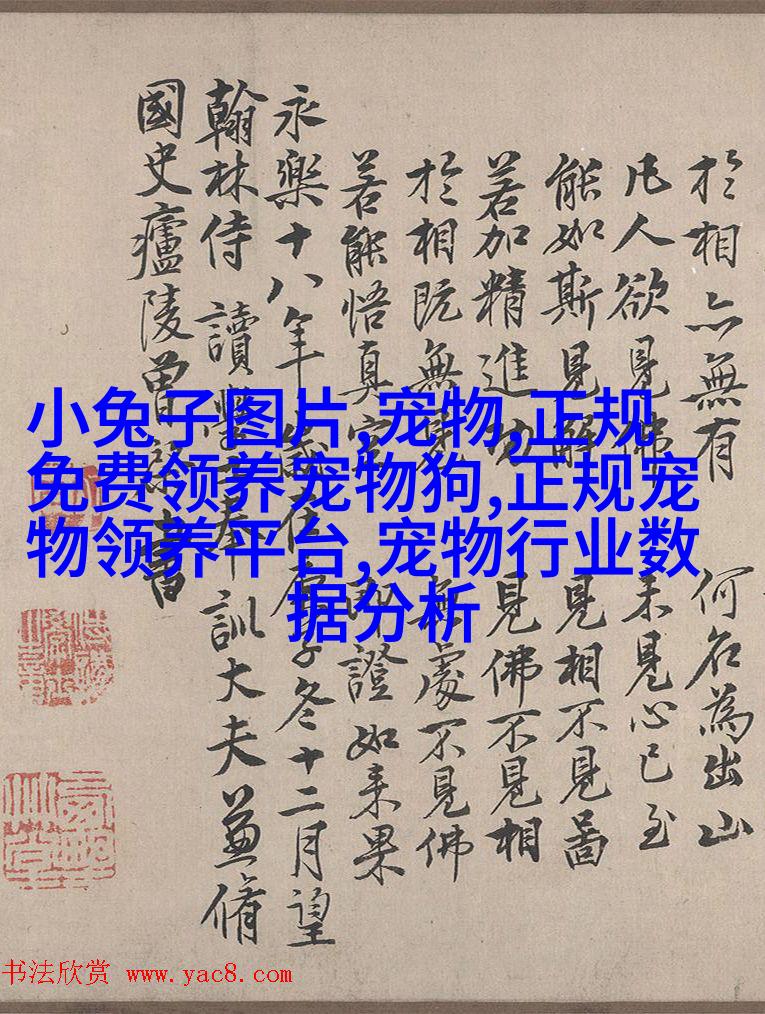 於相亦無有 何名為出山
凡人欲見佛 未見心已至
能如斯見解 見相不見啚
若加精進功 見佛不見相
於相既無 處不見佛
若能悟真空 證如来果
永樂十八年歲在庚子冬十二月望
翰林侍讀學士奉訓大夫兼脩
國史廬陵曾棨書
小兔子图片,宠物,正规
免费领养宠物狗,正规宠
物领养平台,宠物行业数
据分析
书法欣赏 www.yac8.com